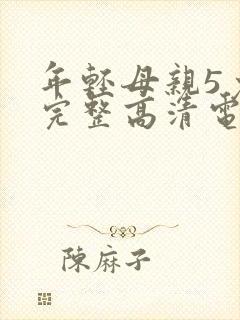 年輕母親5
完整高清電
陳麻子